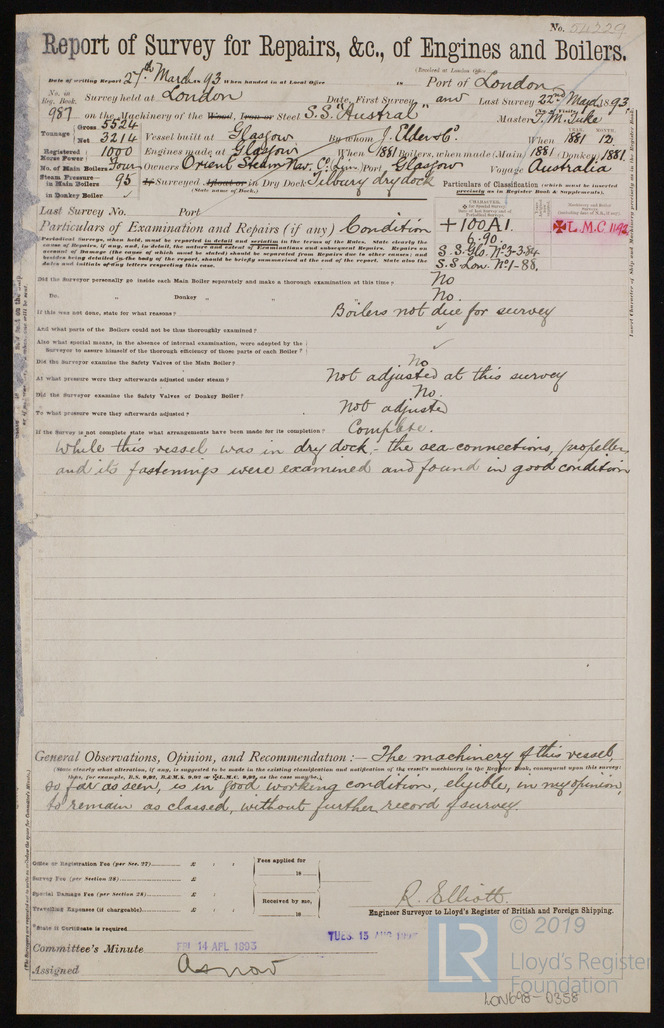 No. 54229
Report of Survey for Repairs, &c., of Engines and Boilers.
(Received at London Office
Date of writing Report 27th March 1893 When handed in at Local Office 18 Port of London
No. in Reg. Book. Survey held at London Date, First Survey " and Last Survey 22nd Mar 1893
987 on the Machinery of the Wood, Iron or Steel S.S. "Austral" Master
Tonnage Gross 5524 Net 3214 Vessel built at Glasgow By whom J. Elder & Co. When 1881 12
YEAR. MONTH.
Registered Horse Power 1000 Engines made at Glasgow When 1881 Boilers, when made (Main) 1881 (Donkey) 1881
No. of Main Boilers Four Owners Orient Steam Nav. Co. Lim. Port Glasgow Voyage Australia
Steam Pressure in Main Boilers 95 If Surveyed Afloat or in Dry Dock Tilbury dry dock
(State name of Dock.)
in Donkey Boiler ✓
Particulars of Classification (which must be inserted precisely as in Register Book & Supplements).
Last Survey No. Port
Particulars of Examination and Repairs (if any) Condition
+100A1.
6.90.
S.S. Glo. No 3-3-84
S.S. Lon. No 1-88.
✠L.M.C 11,92
Periodical Surveys, when held, must be reported in detail and seriatim in the terms of the Rules. State clearly the
cause of Repairs, if any, and, in detail, the nature and extent of Examinations and subsequent Repairs. Repairs on
account of Damage (the cause of which must be stated) should be separated from Repairs due to other causes; and
besides being detailed in the body of the report, should be briefly summarised at the end of the report. State also the
dates and initials of any letters respecting this case.
Did the Surveyor personally go inside each Main Boiler separately and make a thorough examination at this time? No
Do. " Donkey " " No.
If this was not done, state for what reasons? Boilers not due for survey
And what parts of the Boilers could not be thus thoroughly examined? ✓
Also what special means, in the absence of internal examination, were adopted by the
Surveyor to assure himself of the thorough efficiency of those parts of each Boiler? ✓
Did the Surveyor examine the Safety Valves of the Main Boiler? No
At what pressure were they afterwards adjusted under steam? Not adjusted at this survey
Did the Surveyor examine the Safety Valves of Donkey Boiler? No.
To what pressure were they afterwards adjusted? Not adjusted
If the Survey is not complete state what arrangements have been made for its completion? Complete.
While this vessel was in dry dock, the sea connections, propeller,
and its fastenings were examined and found in good condition
General Observations, Opinion, and Recommendation:— The machinery of this vessel,
(State clearly what alteration, if any, is suggested to be made in the existing classification and notification of the vessel's machinery in the Register Book, consequent upon this survey:
thus, for example, B.S. 9,92, B.&M.S. 9,92 or ✠L.M.C. 9,92, as the case may be.)
so far as seen, is in good working condition, eligible, in my opinion,
to remain as classed, without further record of survey
Office or Registration Fee (per Sec. 27) £ : : Fees applied for
Survey Fee (per Section 28) £ : : 18
Special Damage Fee (per Section 28) £ : : Received by me,
Travelling Expenses (if chargeable) £ : : 18
R. Elliott.
Engineer Surveyor to Lloyd's Register of British and Foreign Shipping.
State if Certificate is required
Committee's Minute FRI 14 APL 1893
TUES. 15 AUG 1893
Assigned As now
© 2019
LR
Lloyd's Register
Foundation
LON698-0358